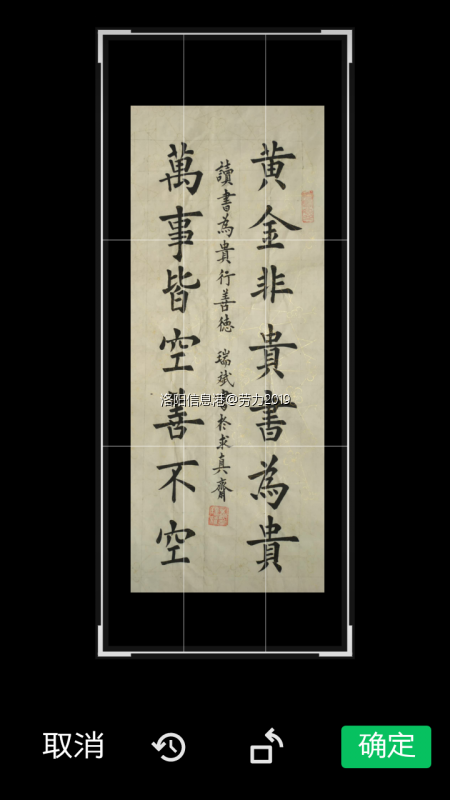 黃金非貴書為貴
萬事皆空善不空
讀書為貴行善德 瑞斌書於求真齋
洛阳信息港@劳力2019
取消
确定